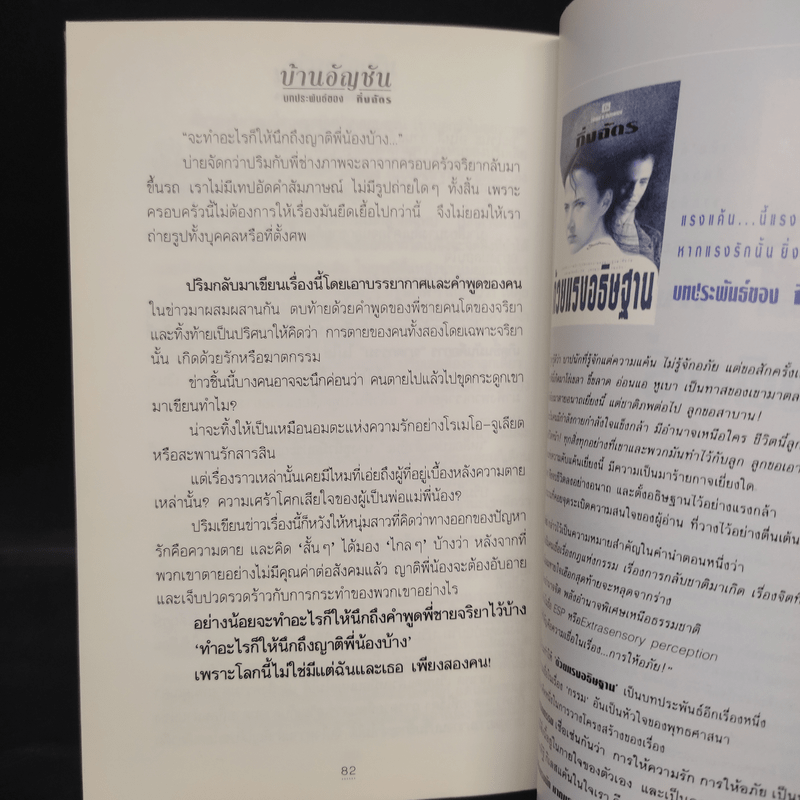 บ้านอัญชัน
บทประพันธ์ของ ทีมฉัตร
"จะทำอะไรก็ให้นึกถึงญาติพี่น้องบ้าง..."
บ่ายจัดกว่าปริมกับพี่ช่างภาพจะลาจากครอบครัวจริยากลับมา
ขึ้นรถ เราไม่มีเทปอัดคำสัมภาษณ์ ไม่มีรูปถ่ายใดๆ ทั้งสิ้น เพราะ
ครอบครัวนี้ไม่ต้องการให้เรื่องมันยืดเยื้อไปกว่านี้ จึงไม่ยอมให้เรา
ถ่ายรูปทั้งบุคคลหรือที่ตั้งศพ
ปริมกลับมาเขียนเรื่องนี้โดยเอาบรรยากาศและคำพูดของคน
ในข่าวมาผสมผสานกัน ตบท้ายด้วยคำพูดของพี่ชายคนโตของจริยา
และทิ้งท้ายเป็นปริศนาให้คิดว่า การตายของคนทั้งสองโดยเฉพาะจริยา
นั้น เกิดด้วยรักหรือฆาตกรรม
ข่าวชิ้นนี้บางคนอาจจะนึกค่อนว่า คนตายไปแล้วไปขุดกระดูกเขา
มาเขียนทำไม?
น่าจะทิ้งให้เป็นเหมือนอมตะแห่งความรักอย่างโรเมโอ-จูเลียต
หรือสะพานรักสารสิน
แต่เรื่องราวเหล่านั้นเคยมีไหมที่เอ่ยถึงผู้ที่อยู่เบื้องหลังความตาย
เหล่านั้น? ความเศร้าโศกเสียใจของผู้เป็นพ่อแม่พี่น้อง?
ปริมเขียนข่าวเรื่องนี้ก็หวังให้หนุ่มสาวที่คิดว่าทางออกของปัญหา
รักคือความตาย และคิด 'สั้นๆ' ได้มอง 'ไกลๆ' บ้างว่า หลังจากที่
พวกเขาตายอย่างไม่มีคุณค่าต่อสังคมแล้ว ญาติพี่น้องจะต้องอับอาย
และเจ็บปวดรวดร้าวกับการกระทำของพวกเขาอย่างไร
อย่างน้อยจะทำอะไรก็ให้นึกถึงคำพูดพี่ชายจริยาไว้บ้าง
'ทำอะไรก็ให้นึกถึงญาติพี่น้องบ้าง'
เพราะโลกนี้ไม่ใช่มีแต่ฉันและเธอ เพียงสองคน!
82
ทีมฉัตร
ด้วยแรงอธิษฐาน
แรงแค้น...นี้แรง
หากแรงรักนั้น ยิ่ง
บทประพันธ์ของ
บาปนักที่รู้จักแต่ความแค้น ไม่รู้จักอภัย แต่ขอสักครั้ง
ขี้ขลาด อ่อนแอ หูเบา เป็นทาสของเขามาตล
แต่ชาติภพต่อไป ลูกขอสาบาน!
มีกำลังกายกำลังใจแข็งกล้า มีอำนาจเหนือใคร ชีวิตนี้ลูก
ทุกสิ่งทุกอย่างที่เขาและพวกมันทำไว้กับลูก ลูกขอเอา
มีความเป็นมาร้ายกาจเยี่ยงใด
และตั้งอธิษฐานไว้อย่างแรงกล้า
จุดระเบิดความสนใจของผู้อ่าน ที่วางไว้อย่างตื่นเต้น
ไว้เป็นความหมายสำคัญในคำนำตอนหนึ่งว่า
เรื่องกฎแห่งกรรม เรื่องการกลับชาติมาเกิด เรื่องจิตที่
สุดท้ายจะหลุดจากร่าง
พลังอำนาจพิเศษเหนือธรรมชาติ
ESP หรือExtrasensory perception
ความเชื่อในเรื่อง...การให้อภัย!"
'ด้วยแรงอธิษฐาน' เป็นบทประพันธ์อีกเรื่องหนึ่ง
ในเรื่อง 'กรรม' อันเป็นหัวใจของพุทธศาสนา
ในการวางโครงสร้างของเรื่อง
เชื่อเช่นกันว่า การให้ความรัก การให้อภัย เป็น
อยู่ในกายใจของตัวเอง และเป็น